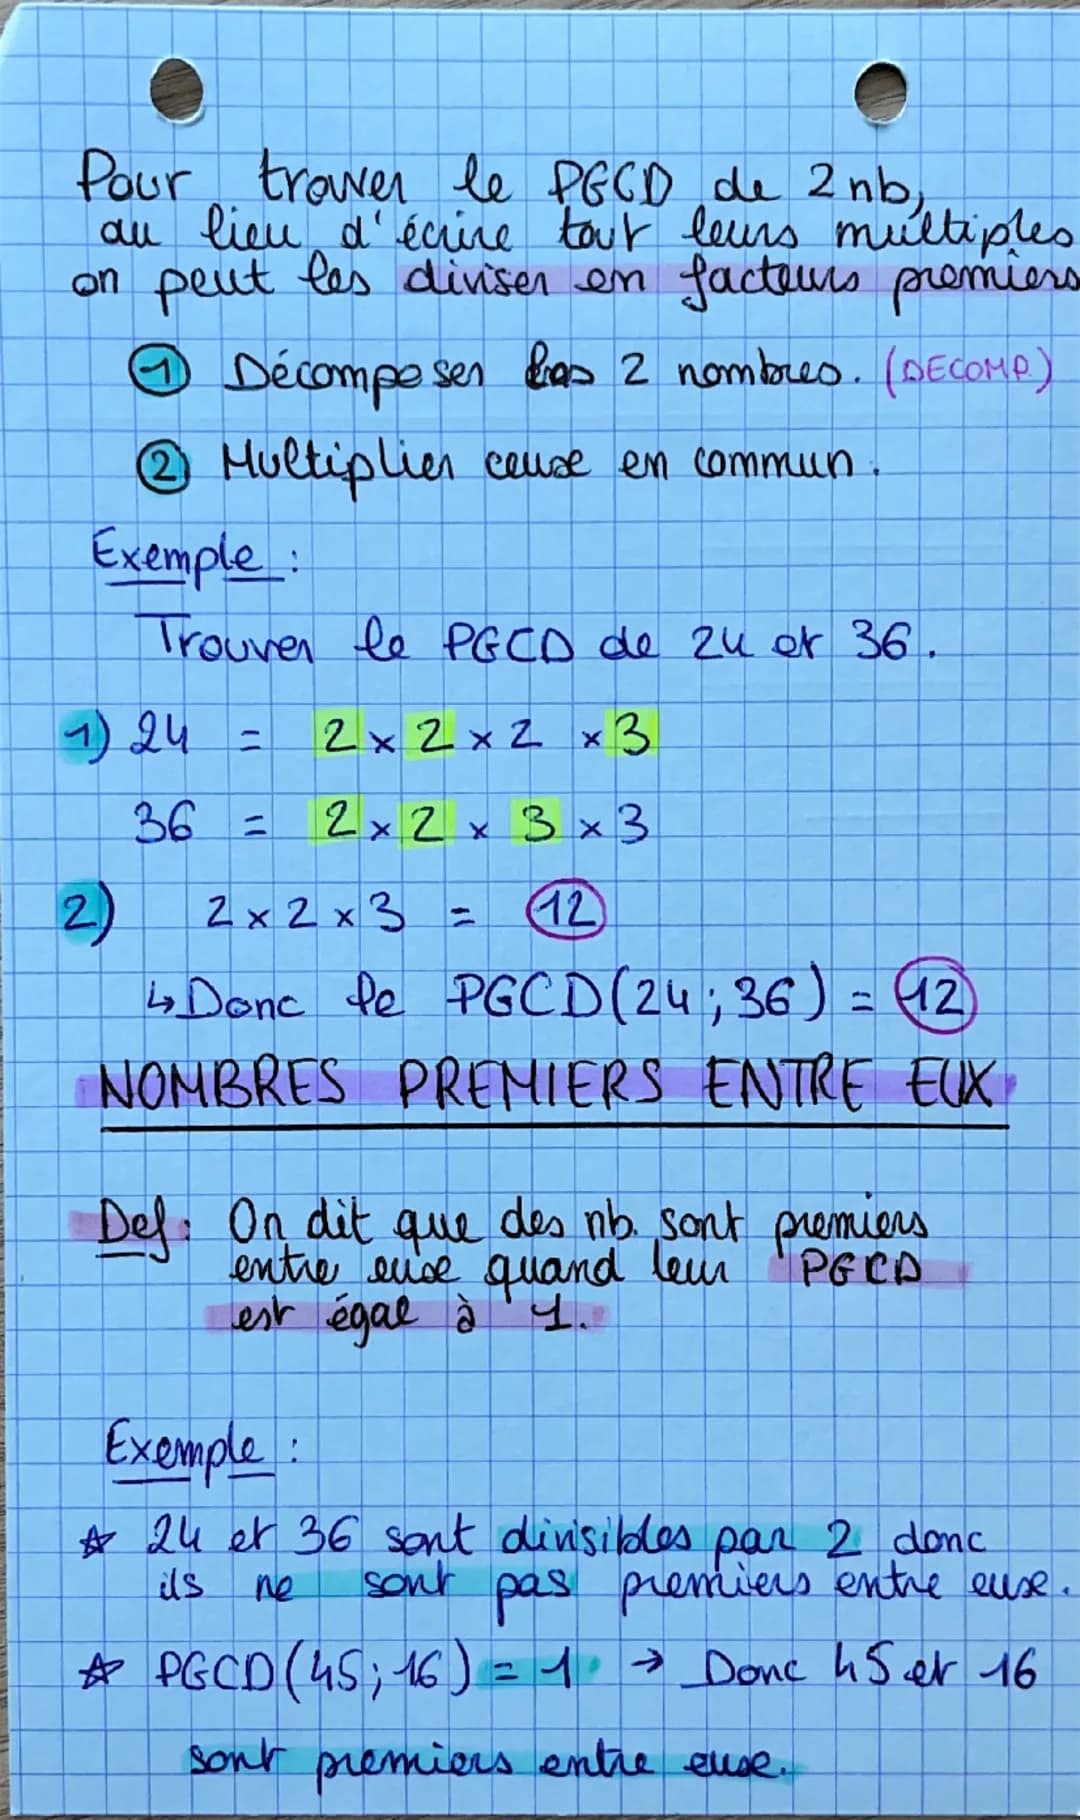 Pour trouver le PGCD de 2 nb,
au lieu d'écrire tout leurs multiples
on peut les diviser en facteurs premiers
① Décomposer les 2 nombres. (DECOMP.)
② Multiplier ceux en commun.
Exemple :
Trouver le PGCD de 24 et 36.
1) 24 = 2 × 2 × 2 × 3
36 = 2 × 2 × 3 × 3
2) 2 × 2 × 3 = 12
↳ Donc le PGCD(24 ; 36) = 12
NOMBRES PREMIERS ENTRE EUX
Def : On dit que des nb. sont premiers
entre eux quand leur PGCD
est égal à 1.
Exemple :
☆ 24 et 36 sont divisibles par 2 donc
ils ne sont pas premiers entre eux.
☆ PGCD(45; 16) = 1 → Donc 45 et 16
sont premiers entre eux.